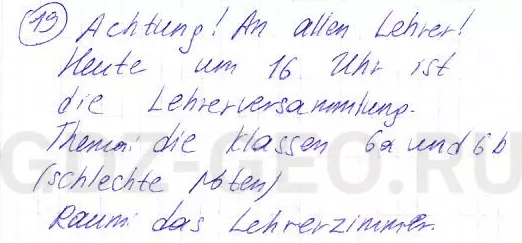 19 Achtung! An allen Lehrer!
Heute um 16 Uhr ist
die Lehrerversammlung.
Thema: die Klassen 6a und 6b
(schlechte Noten)
Raum: das Lehrerzimmer.
GDZ-GEO.RU